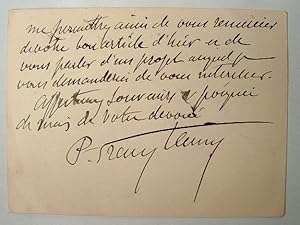 me permettre ainsi de vous remercier
de votre bon article d'hier et de
vous parler d'un projet auquel je
vous demanderai de vous intéresser.
Affectueux souvenirs
de votre dévoué
P. Franz